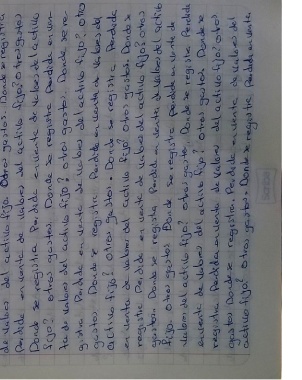 de valores del activo fijo. Otros gastos. Donde se registra
Perdida en venta de valores del activo fijo? Otros gastos
Donde se registra Perdida en venta de valores del activo
fijo? otros gastos. Donde se registra Perdida en ven-
ta de valores del activo fijo? otros gastos. Donde se re-
gistra Perdida en venta de valores del activo fijo? otros
gastos. Donde se registra Perdida en venta de valores del
activo fijo? otros gastos. Donde se registra Perdida
en venta de valores del activo fijo? otros gastos. Donde se
registra Perdida en venta de valores del activo fijo? otros
gastos. Donde se registra Perdida en venta de valores del activo
fijo. otros gastos Donde se registra perdida en venta de
valores del activo fijo? otros gasto. Donde se registra Perdida
en venta de valores del activo fijo? otros gastos Donde se
registra Perdida en venta de valores del activo fijo? otros
gastos Donde se registra. Perdida en venta de valores del
activo fijo? otros gastos? Donde se registra Perdida en venta